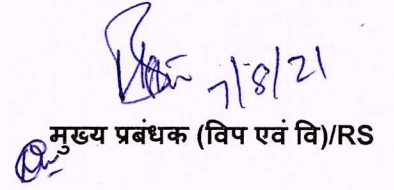 7/8/21
मुख्य प्रबंधक (विप एवं वि)/RS